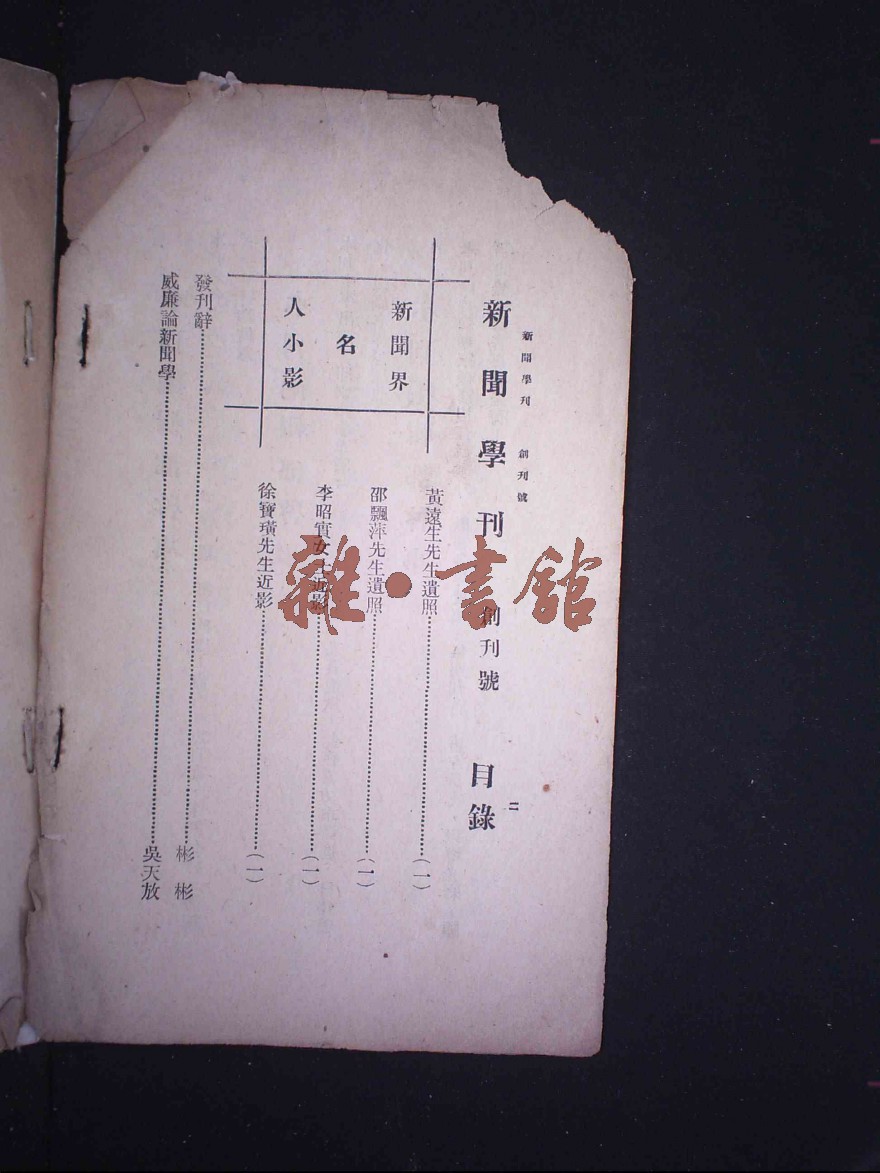 新聞學刊　創刊號
二
新聞學刊　創刊號　目錄
新聞界
名
人小影
黃遠生先生遺照………（一）
邵飄萍先生遺照………（一）
李昭實女士近影………（一）
徐寶璜先生近影………（一）
發刊辭………彬彬
威廉論新聞學………吳天放
雜·書館